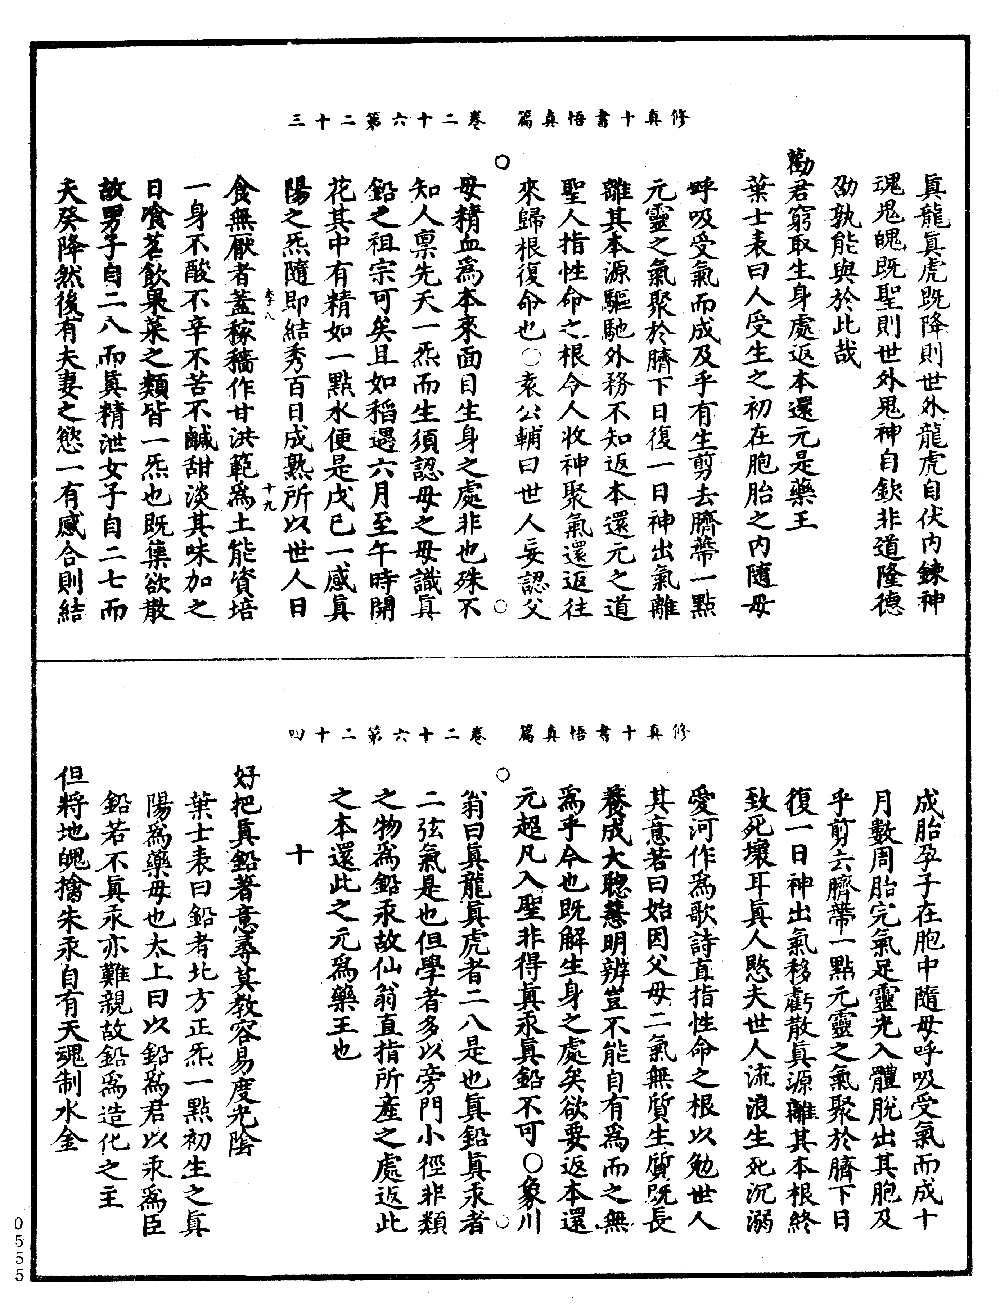 修真十書悟真篇　卷二十六第二十三
真龍真虎既降則世外龍虎自伏内鍊神
魂鬼魄既聖則世外鬼神自欽非道隆德
劭孰能與於此哉
勸君窮取生身處返本還元是藥王
葉士表曰人受生之初在胞胎之内隨母
呼吸受氣而成及乎有生剪去臍蔕一點
元靈之氣聚於臍下日復一日神出氣離
離其本源驅馳外務不知返本還元之道
聖人指性命之根令人收神聚氣還返往
來歸根復命也○袁公輔曰世人妄認父
母精血爲本來面目生身之處非也殊不
知人禀先天一炁而生須認母之母識真
鉛之祖宗可矣且如稻遇六月至午時開
花其中有精如一點水便是戊已一感真
陽之炁隨即結秀百日成熟所以世人日
食無厭者蓋稼穡作甘洪範爲土能資培
李八　十九
一身不酸不辛不苦不鹹甜淡其味加之
日飡茗飲果菜之類皆一炁也既集欲散
故男子自二八而真精泄女子自二七而
天癸降然後有夫妻之慾一有感合則結
修真十書悟真篇　卷二十六第二十四
成胎孕子在胞中隨母呼吸受氣而成十
月數周胎完氣足靈光入體脫出其胞及
乎剪去臍蔕一點元靈之氣聚於臍下日
復一日神出氣移虧散真源離其本根終
致死壞耳真人愍夫世人流浪生死沉溺
愛河作爲歌詩直指性命之根以勉世人
其意若曰始因父母二氣無質生質既長
養成大聰慧明辨豈不能自有爲而之無
爲乎今也既解生身之處矣欲要返本還
元超凡入聖非得真汞真鉛不可○象川
翁曰真龍真虎者二八是也真鉛真汞者
二弦氣是也但學者多以旁門小徑非類
之物爲鉛汞故仙翁直指所產之處返此
之本還此之元爲藥王也
十
好把真鉛著意尋莫教容易度光陰
葉士表曰鉛者北方正炁一點初生之真
陽爲藥母也太上曰以鉛爲君以汞爲臣
鉛若不真汞亦難親故鉛爲造化之主
但將地魄擒朱汞自有天魂制水金
0555